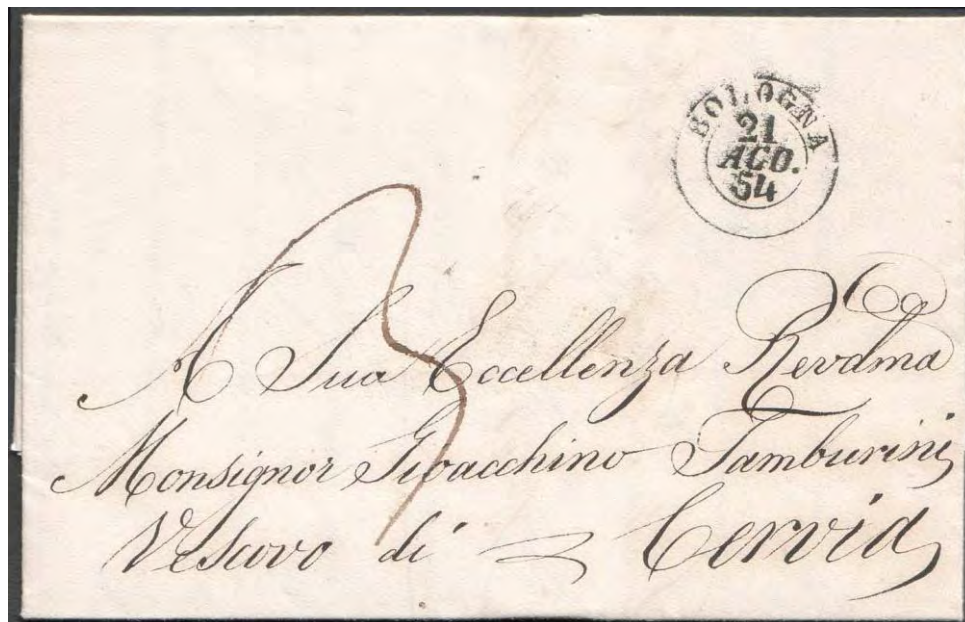 BOLOGNA
21
AGO.
54
3
A Sua Eccellenza Revdma
Monsignor Gioacchino Tamburini
Vescovo di Cervia